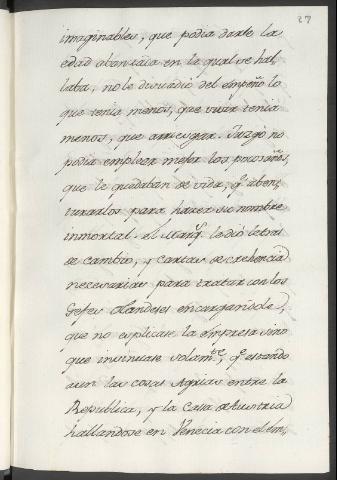 27
imaginables, que podia darle la
edad abanzada en la qual se hal,
laba, no le disuadio del empeño lo
que tenia menos, que vivir tenia
menos, que arriesgar. Juzgó no
podia emplear mejor los pocos años,
que le quedaban de vida, q.e aben,
turarlos para hazer su nombre
inmortal. el Marq.s le dió letras
de cambio, y cartas de crehencia
necesarias para tratar con los
Gefes olandeses encargandole,
que no esplicase la empresa sino
que insinuase solam.te, q.e estando
aun las cosas agrias entre la
Republica, y la Casa de Austria
hallandose en Venecia con el em,